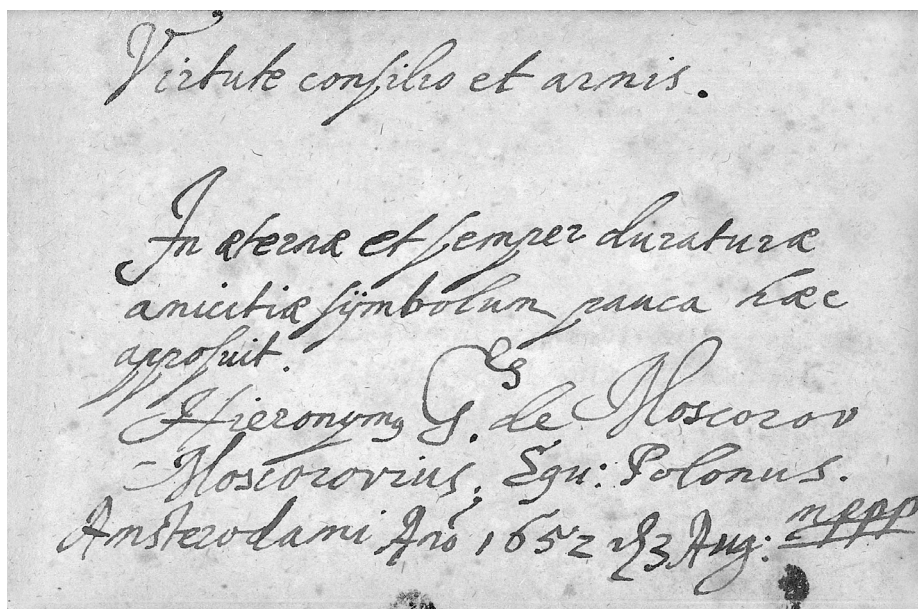 Virtute consilio et armis.
In æternæ et semper duraturæ
amicitiæ sÿmbolum pauca hæc
apposuit.
Hieronymꝰ G. de Moscorov
Moscorovius. Equ: Polonus.
Amsterodami Año 1652 3 Aug: mppp